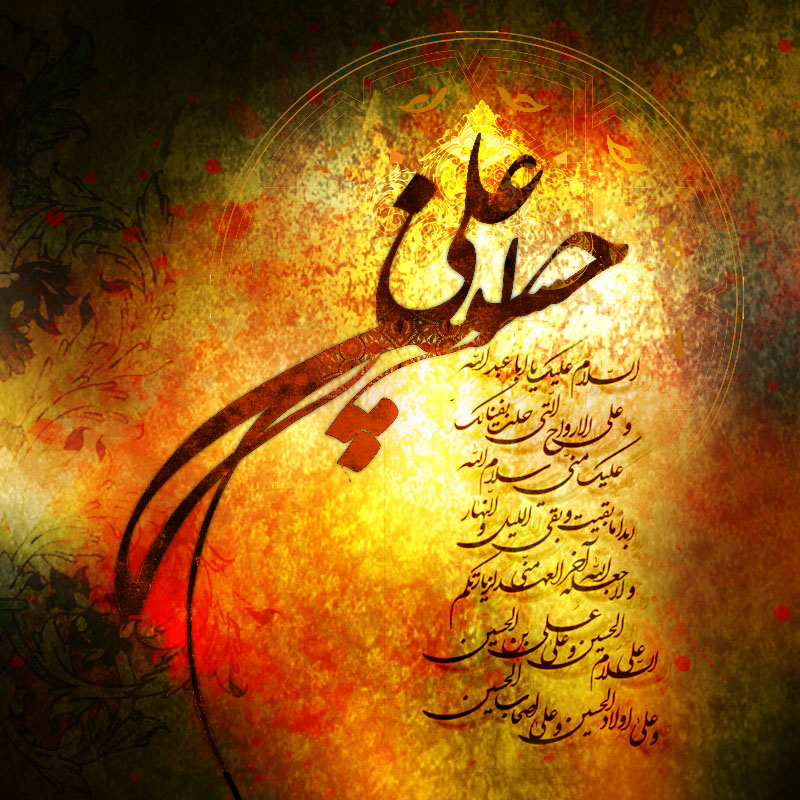 حسین
علی
السلام علیک یا ابا عبدالله
و علی الارواح التی حلت بفنائک
علیک منی سلام الله
ابدا ما بقیت و بقی اللیل و النهار
و لا جعله الله آخر العهد منی لزیارتکم
السلام علی الحسین و علی علی بن الحسین
و علی اولاد الحسین و علی اصحاب الحسین